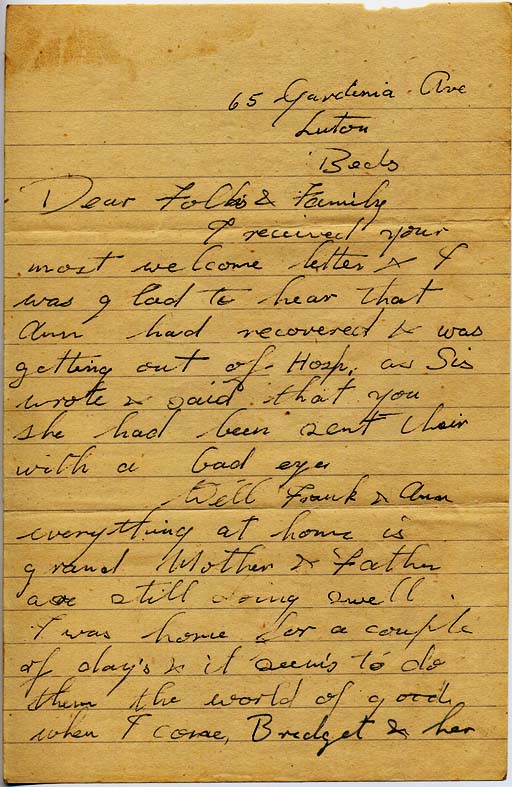 65 Gardenia Ave
Luton
Beds
Dear Folks & Family
I received your
most welcome letter & I
was glad to hear that
Ann had recovered & was
getting out of Hosp, as Sis
wrote & said that you
she had been sent their
with a bad eye
Well Frank & Ann
everything at home is
grand Mother & Father
are still doing swell.
I was home for a couple
of day's & it seem's to do
them the world of good
when I come, Bridget & her